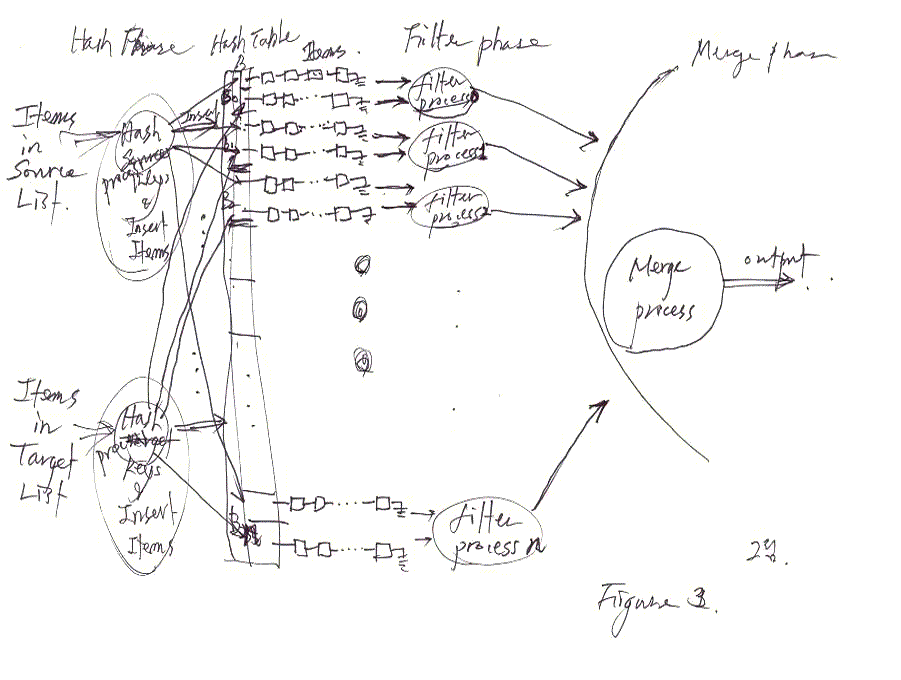 Hash Phase
Hash Table
Items.
Filter phase
Merge phase
Items
in
Source
List.
Insert
Hash
Keys
&
Insert
Items
B
B0
B1
B2
filter
process 0
filter
process 1
filter
process 2
Merge
process
output
Items
in
Target
List
Hash
Keys
&
Insert
Items
filter
process n
24.
Figure 3.